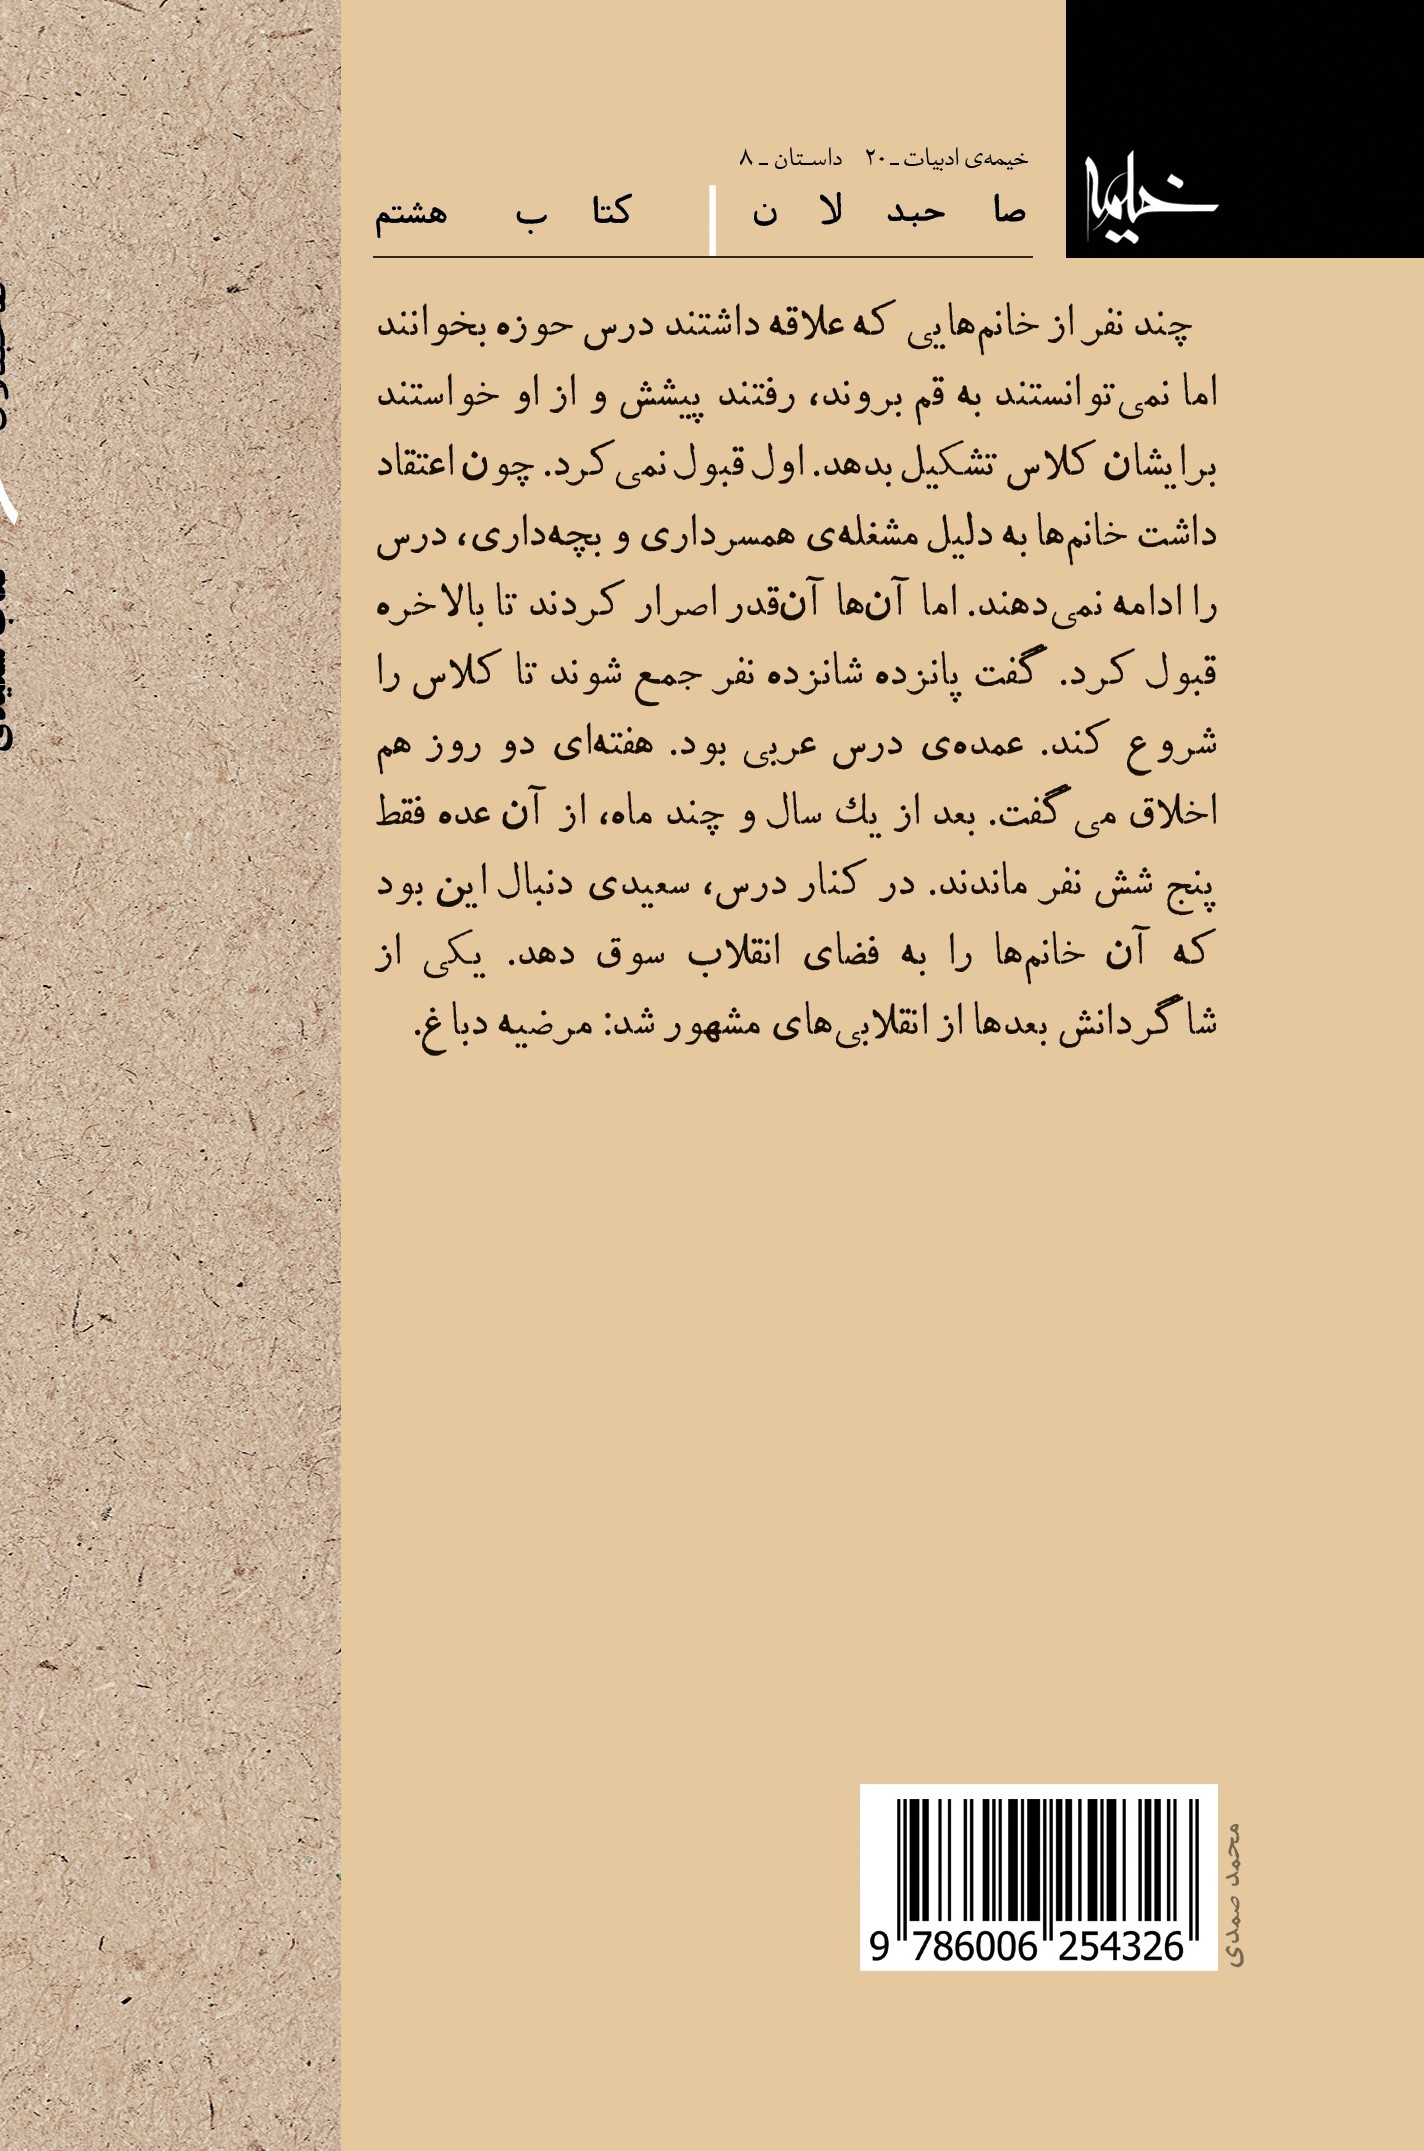 خیمه
خیمه‌ی ادبیات ـ ۲۰ داستان ـ ۸
صاحبدلان | کتاب هشتم
چند نفر از خانم‌هایی که علاقه داشتند درس حوزه بخوانند
اما نمی‌توانستند به قم بروند، رفتند پیشش و از او خواستند
برایشان کلاس تشکیل بدهد. اول قبول نمی‌کرد. چون اعتقاد
داشت خانم‌ها به دلیل مشغله‌ی همسرداری و بچه‌داری، درس
را ادامه نمی‌دهند. اما آن‌ها آن‌قدر اصرار کردند تا بالاخره
قبول کرد. گفت پانزده شانزده نفر جمع شوند تا کلاس را
شروع کند. عمده‌ی درس عربی بود. هفته‌ای دو روز هم
اخلاق می‌گفت. بعد از یك سال و چند ماه، از آن عده فقط
پنج شش نفر ماندند. در کنار درس، سعیدی دنبال این بود
که آن خانم‌ها را به فضای انقلاب سوق دهد. یکی از
شاگردانش بعدها از انقلابی‌های مشهور شد: مرضیه دباغ.
9 786006 254326
محمد صمدی